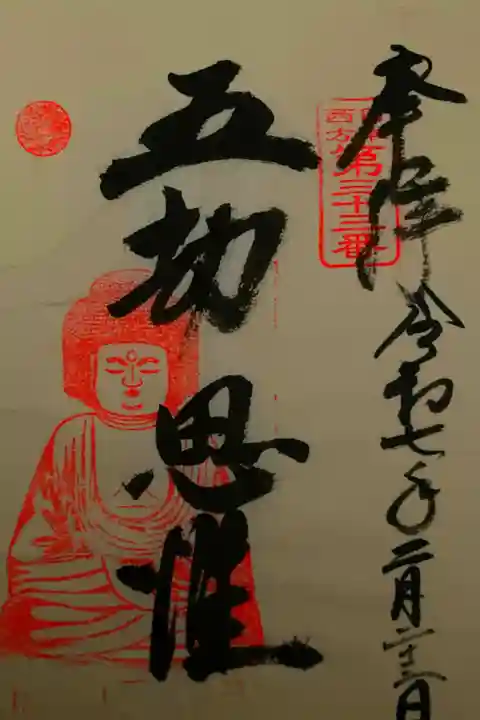 奉拝
令和七年二月二十三日
西方
第三十三番
五劫
思惟